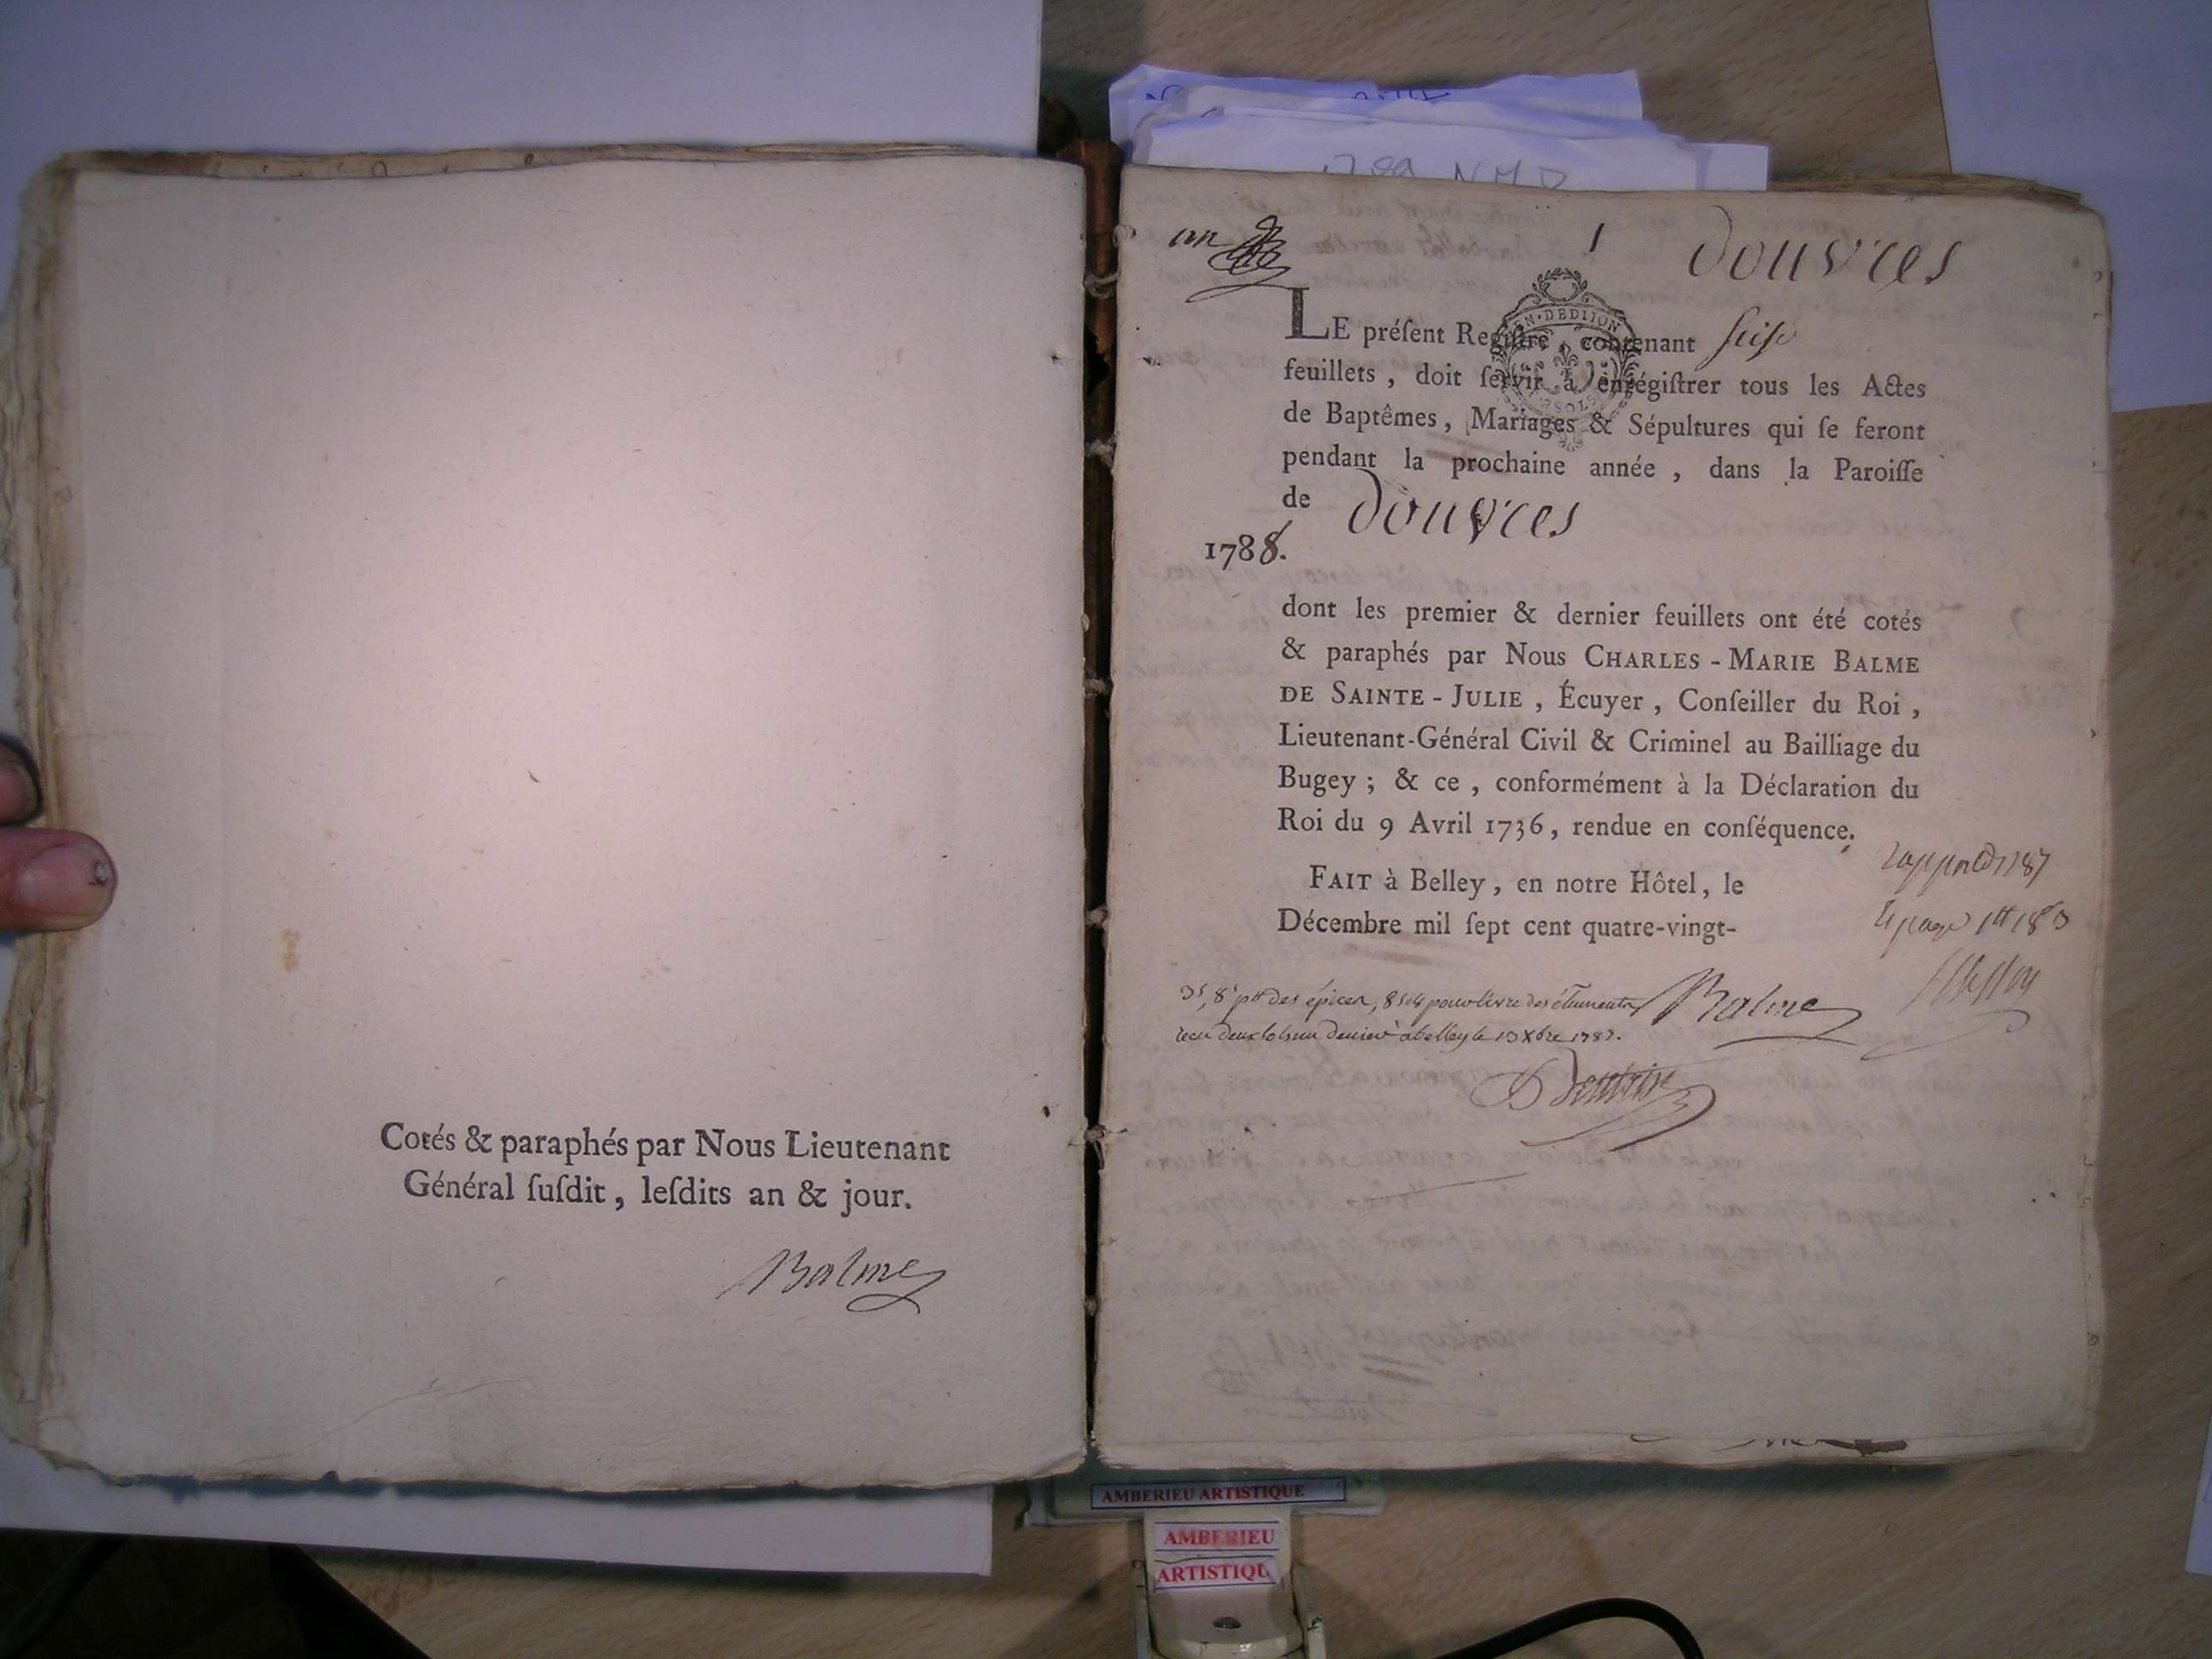 Cotés & paraphés par Nous Lieutenant
Général ſuſdit, leſdits an & jour.
Balme
1789 NMD
un
1
douvres
LE préſent Regiſtre, contenant
feuillets, doit ſervir à enrégiſtrer tous les Actes
de Baptêmes, Mariages & Sépultures qui ſe feront
pendant la prochaine année, dans la Paroiſſe
de douvres
1788.
dont les premier & dernier feuillets ont été cotés
& paraphés par Nous CHARLES-MARIE BALME
DE SAINTE-JULIE, Écuyer, Conſeiller du Roi,
Lieutenant-Général Civil & Criminel au Bailliage du
Bugey; & ce, conformément à la Déclaration du
Roi du 9 Avril 1736, rendue en conſéquence.
FAIT à Belley, en notre Hôtel, le
Décembre mil ſept cent quatre-vingt-
Balme
des épices, pour livre des
reçu deux sols un denier à belley le 13 Xbre 1787.
AMBERIEU ARTISTIQUE
AMBERIEU
ARTISTIQU